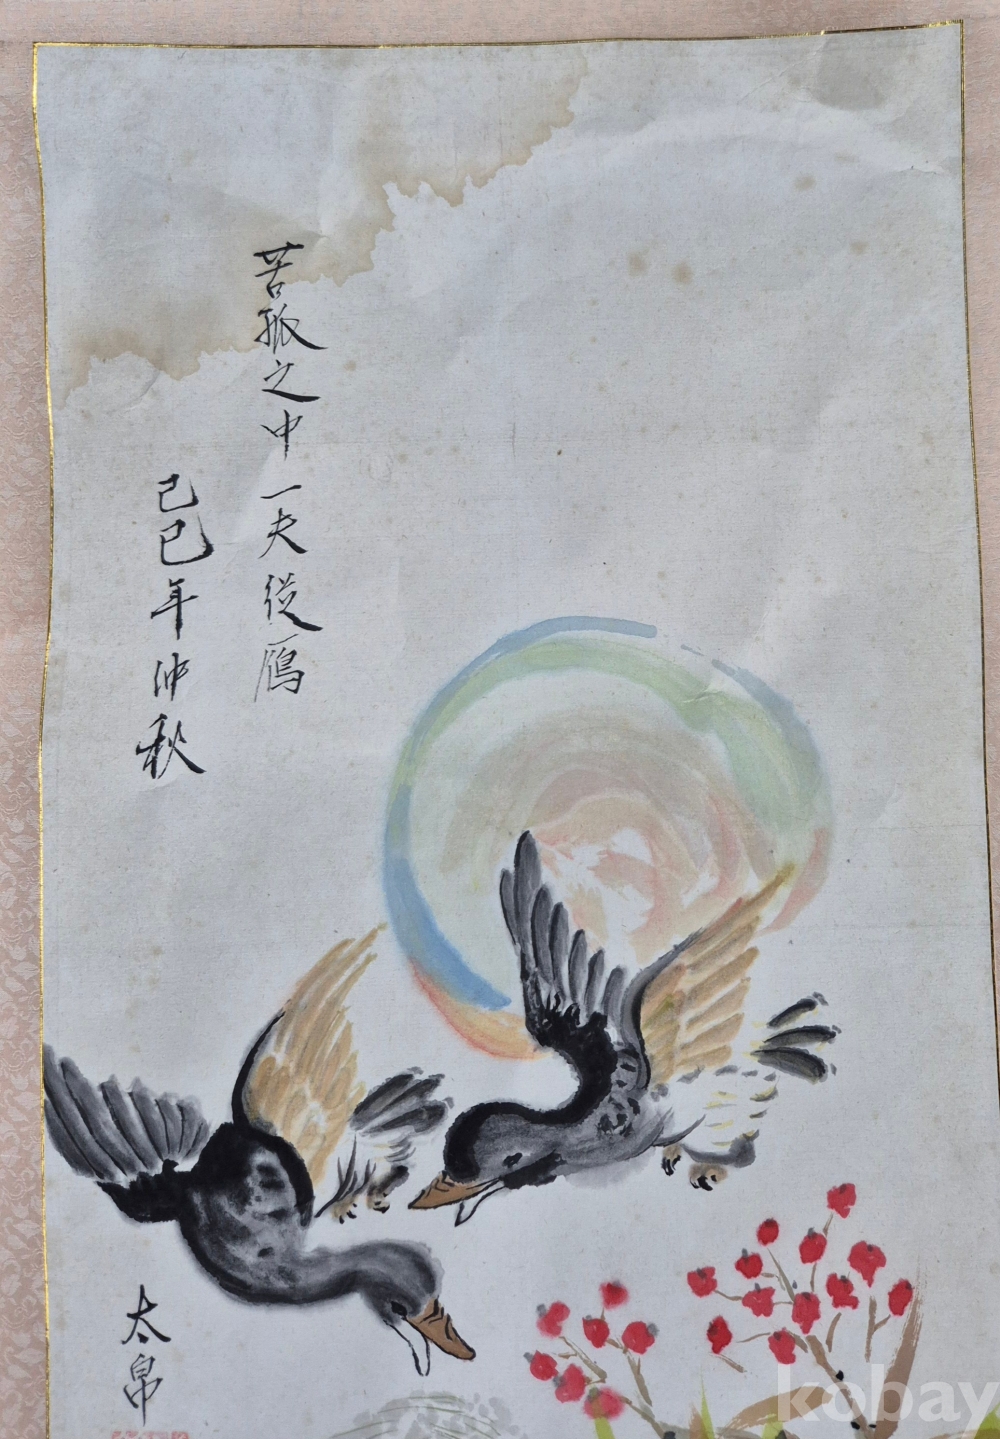 苦孤之中一夫從鴈
己巳年仲秋
太帛
kobay